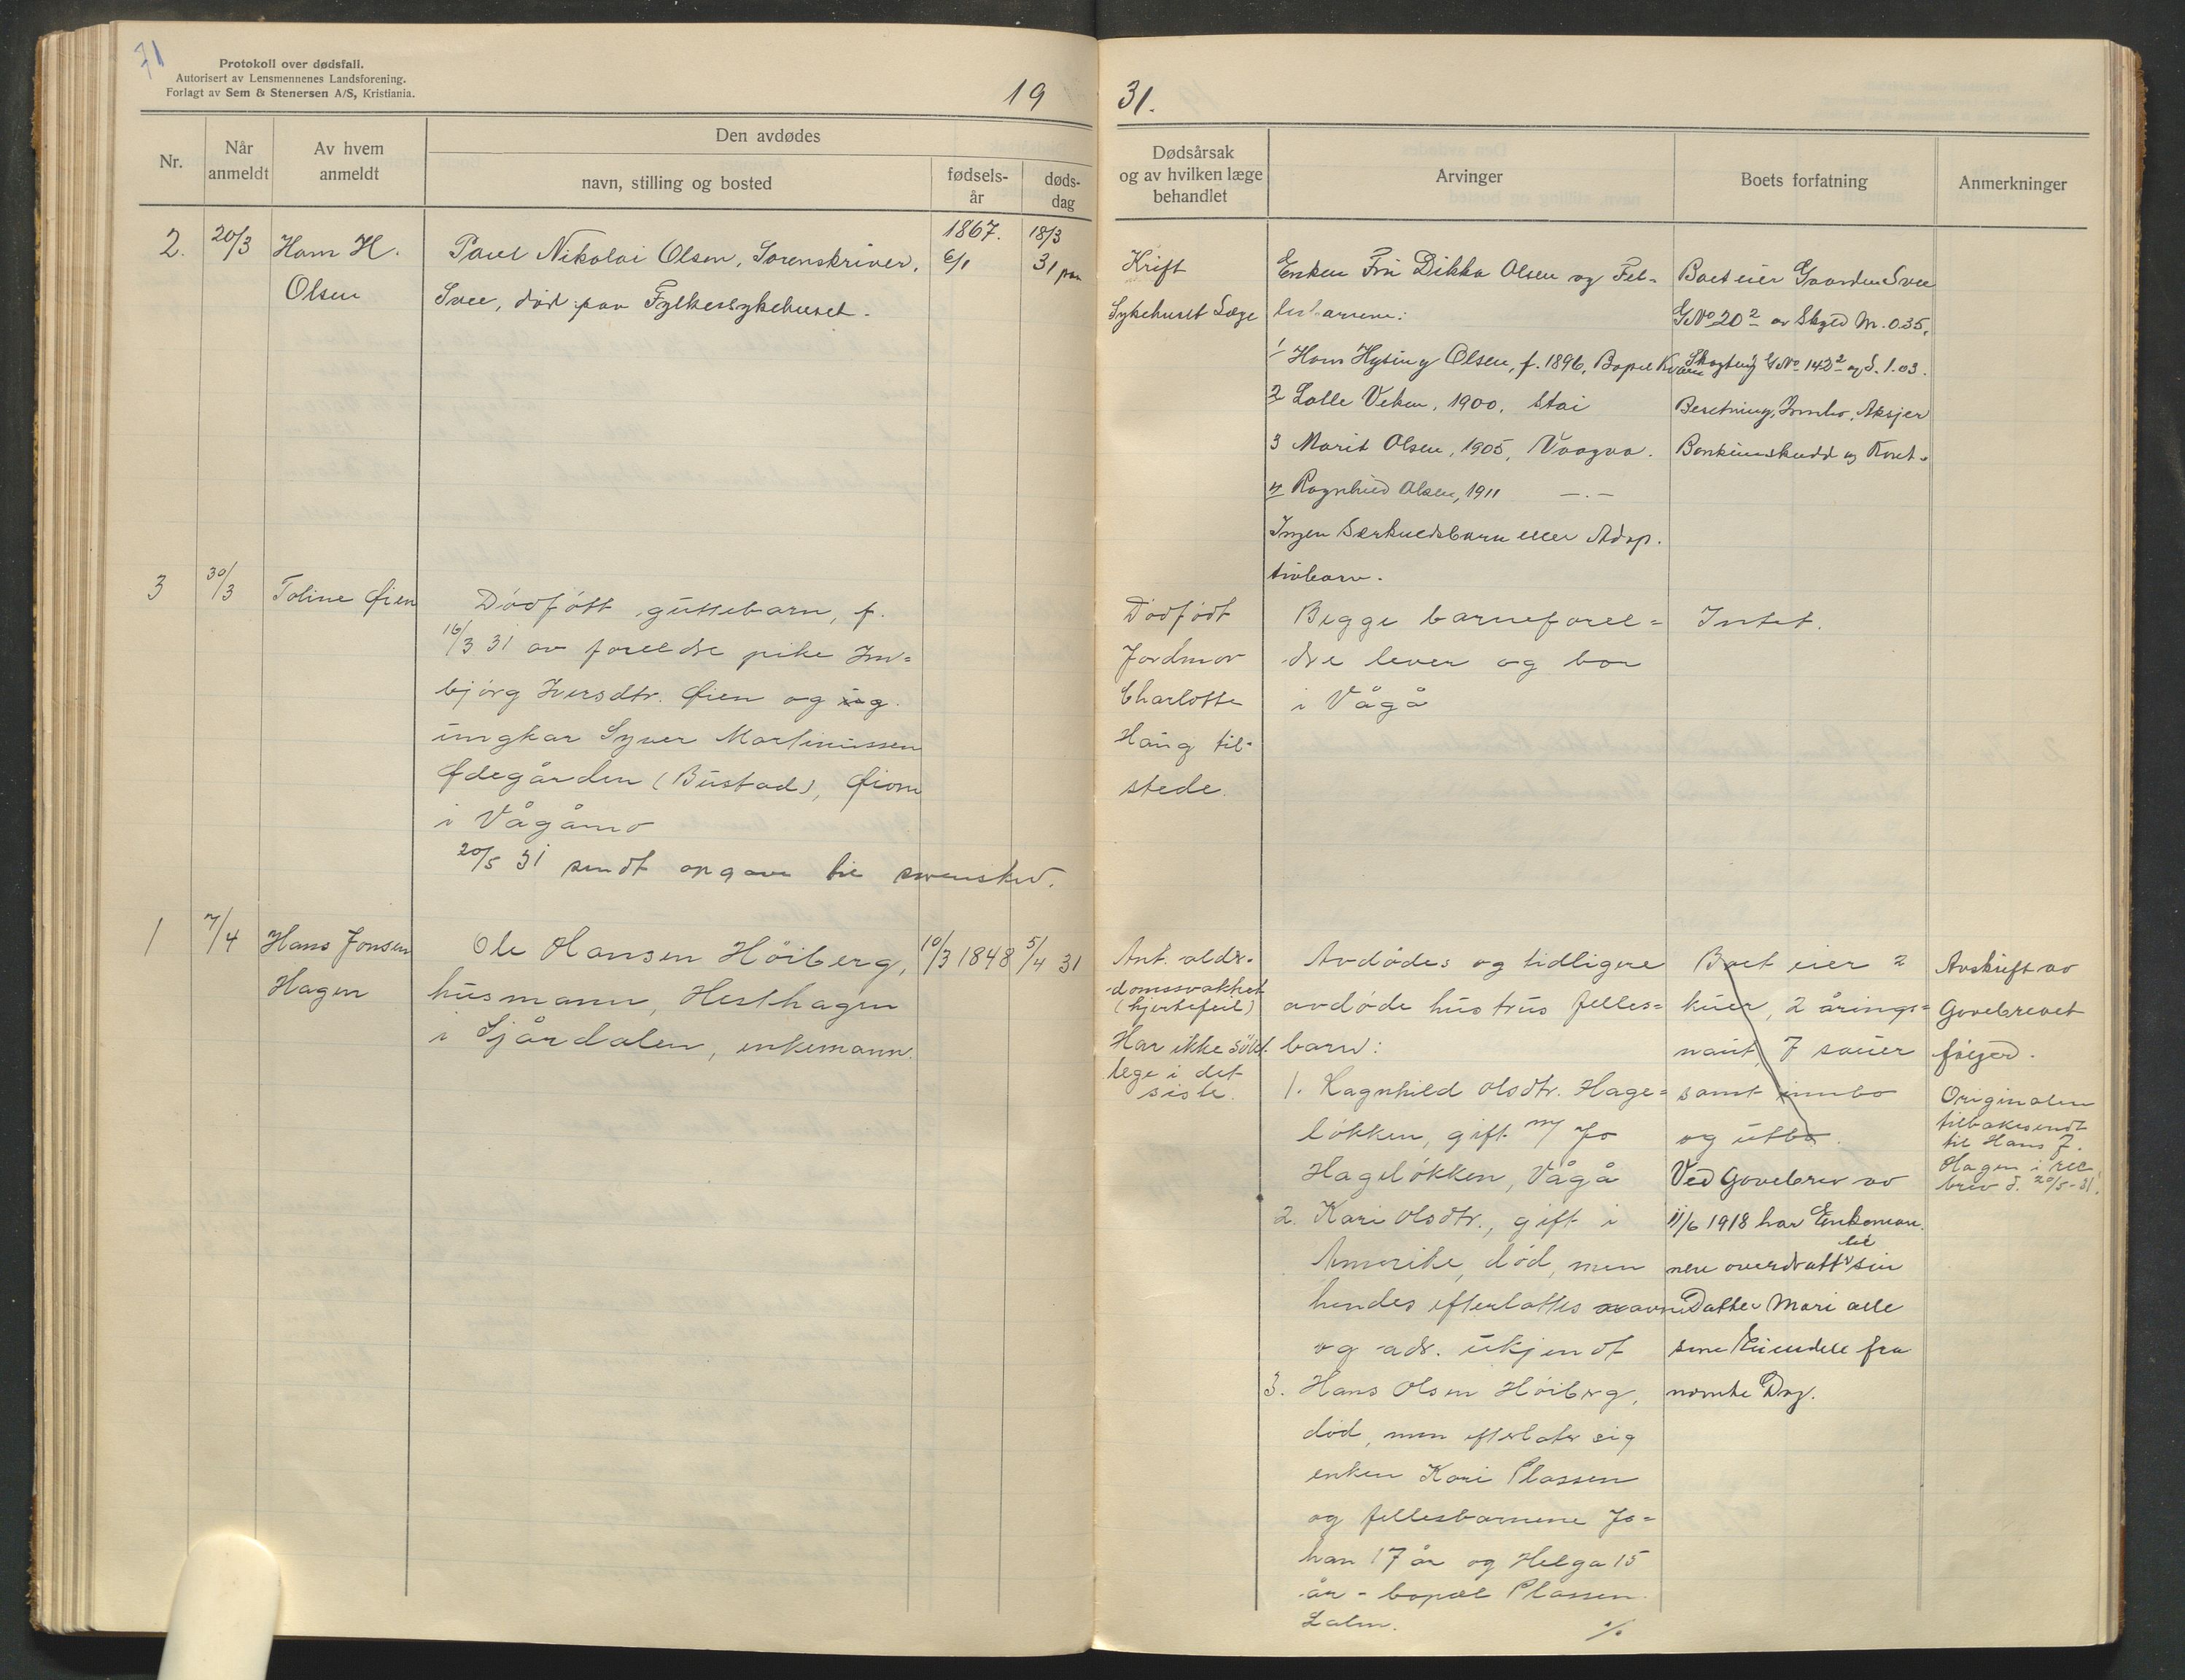 71
Protokoll over dødsfall.
Autorisert av Lensmennenes Landsforening.
Forlagt av Sem & Stenersen A/S, Kristiania.
19
31.
Nr.
Når anmeldt
Av hvem anmeldt
Den avdødes
navn, stilling og bosted
fødsels-
år
døds-
dag
Dødsårsak
og av hvilken læge
behandlet
Arvinger
Boets forfatning
Anmerkninger
2.
20/3
Hans H.
Olsen
Paul Nikolai Olsen, Sorenskriver,
Svee, død paa Fylkessykehuset.
1867.
6/1
18/3
31
Kræft
Sykehuset Læge
Enken Fru Dikka Olsen og Fel-
lesbarnene:
1/ Hans Hysing Olsen, f. 1896, Bopæl Kvam
2 Lalle Veken, 1900, Stai
3 Marit Olsen, 1905, Vaagaa.
4 Ragnhild Olsen, 1911 —.—
Ingen Særkuldsbarn eller Adop-
tivbarn.
Boet eier Gaarden Svee
GNo 20² av Skyld M. 0.35,
Skogteig GNo 142² og S. 1.03.
Besetning, Innbo, Aksjer
Bankinnskudd og Kont.
3
30/3
Toline Øien
Dødfødt guttebarn, f.
16/3 31 av foreldre pike Im-
bjørg Iversdtr. Øien og
ungkar Syver Martinussen
Ødegården (Bustad), Øien
i Vågåmo
20/5 31 sendt opgave til sorenskr.
Dødfødt
Jordmor
Charlotte
Haug til-
stede.
Begge barneforel=
dre lever og bor
i Vågå
Intet.
1
7/4
Hans Jonsen
Hagen
Ole Hansen Høiberg,
husmann, Hesthagen
i Sjårdalen, enkemann.
10/3 1848
5/4 31
Ant. alder-
domssvakhet
(hjertefeil)
Har ikke søkt
lege i det
siste.
Avdødes og tidligere
avdøde hustrus felles=
barn:
1. Ragnhild Olsdtr. Hage=
løkken, gift m/ Jo
Hageløkken, Vågå
2. Kari Olsdtr., gift i
Amerika, død, men
hendes efterlattes navn
og adr. ukjendt
3. Hans Olsen Høiberg,
død, men efterlater sig
enken Kari Plassen
og fellesbarnene Jo=
han 17 år og Helga 15
år - bopæl Plassen
Lalm.
./.
Boet eier 2
kuer, 2 årings=
naut, 7 sauer
samt innbo
og utbo.
Ved Gavebrev av
11/6 1918 har Enkeman-
nen overdratt til sin
Datter Mari alle
sine Eiendele fra
nevnte Dag.
Avskrift av
Gavebrevet
følger.
Originalen
tilbakesendt
til Hans J.
Hagen i rec
brev d. 20/5-31.